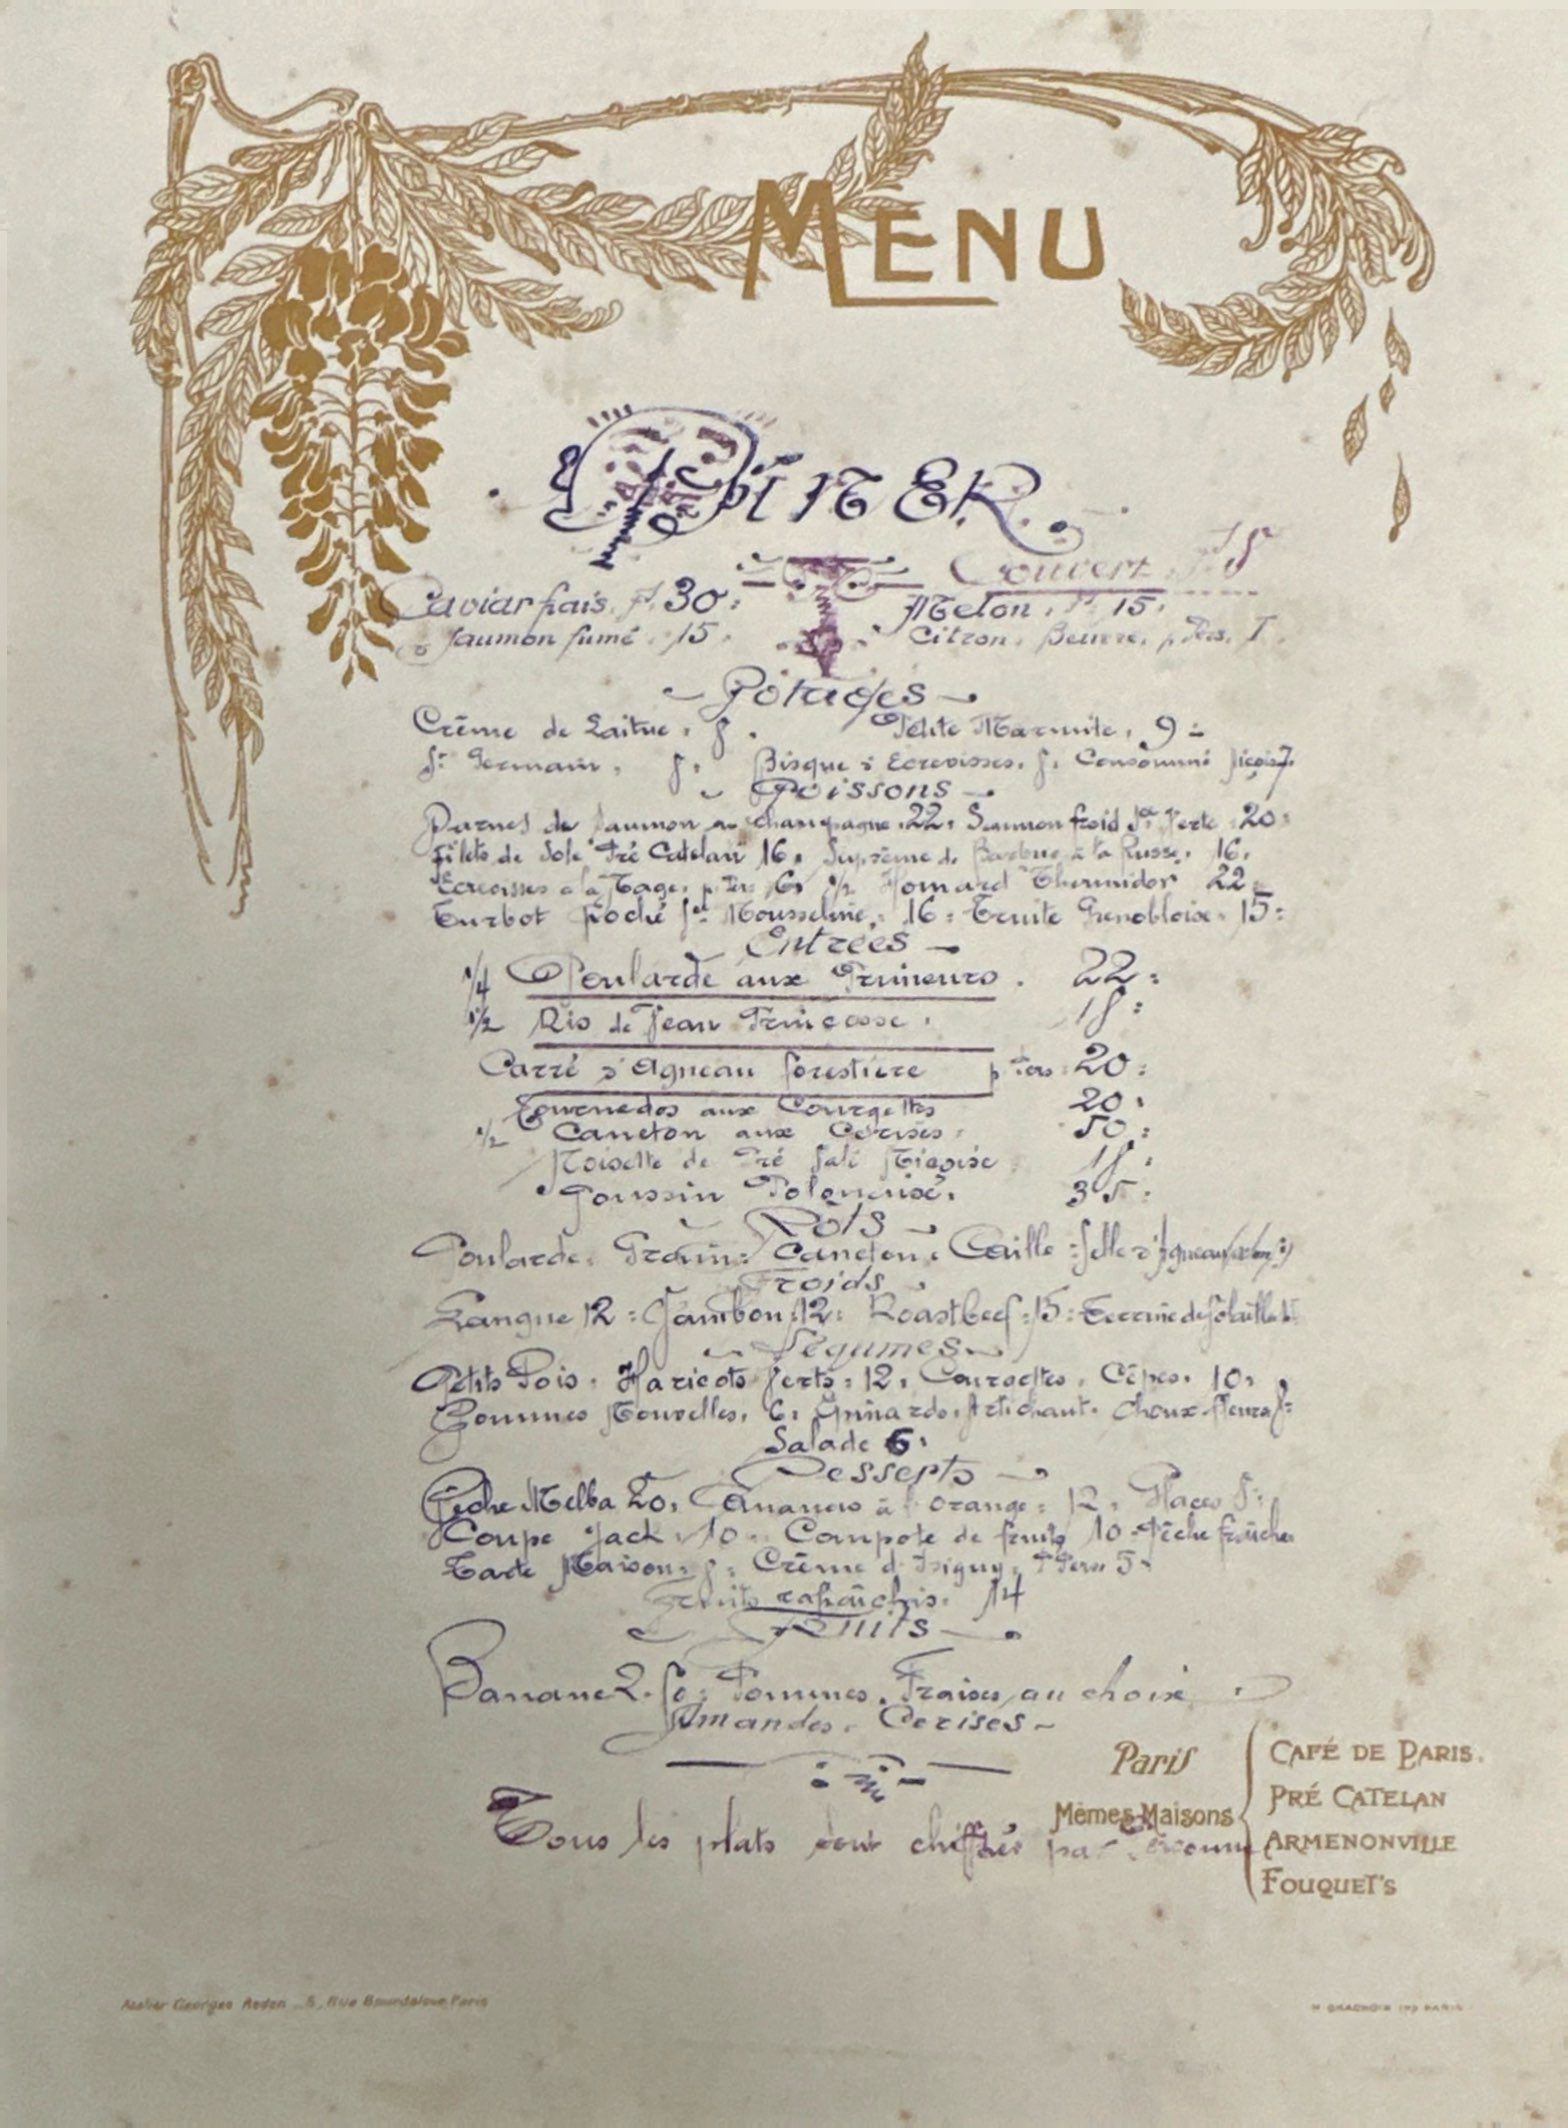 MENU
DÎNER
Couvert
Caviar frais. f. 30: Melon. f. 15.
Saumon fumé. 15. Citron. Beurre. p. Pers. 1.
Potages
Crème de Laitue. 8. Petite Marmite, 9=
St Germain, 8. Bisque Ecrevisses. 8. Consommé 7.
Poissons
Darnes de Saumon au champagne. 22: Saumon froid Sce Verte 20:
Filets de Sole Pré Catelan 16. Suprême de Barbue à la Russe. 16.
Ecrevisses à la Nage. p. Pers 6. 1/2 Homard Thermidor 22
Turbot poché Sce Mousseline. 16: Truite Grenobloise. 15:
Entrées
1/4 Poularde aux Primeurs. 22:
1/2 Ris de Veau Princesse. 18:
Carré d'Agneau forestière p Pers 20:
Tournedos aux Courgettes 20.
1/2 Caneton aux Cerises. 50:
Noisette de Pré Salé Niçoise 18.
Poussin Polonaise. 35:
Rôts
Poularde. Grain: Caneton. Caille: Selle d'Agneau
Froids
Langue 12: Jambon 12: Roastbeef: 15: Terrine de
Légumes
Petits Pois. Haricots Verts: 12. Courgettes. Cêpes. 10.
Pommes Nouvelles. 6. Epinards. Artichaut. Choux-fleurs 8:
Salade 6.
Desserts
Pêche Melba 20. Ananas à l'orange: 12. Glaces 8:
Coupe Jack. 10. Compote de fruits 10. Pêche fraîche
Tarte Maison. 8: Crème d'Isigny. P Pers 5.
Fruits rafraîchis. 14
Fruits
Banane 2.50: Pommes. Fraises au choix
Amandes. Cerises
Tous les plats sont chiffrés par Personne
Paris
Mêmes Maisons
CAFÉ DE PARIS.
PRÉ CATELAN
ARMENONVILLE
FOUQUET'S
Atelier Georges Redon _ 5, Rue Bourdaloue Paris